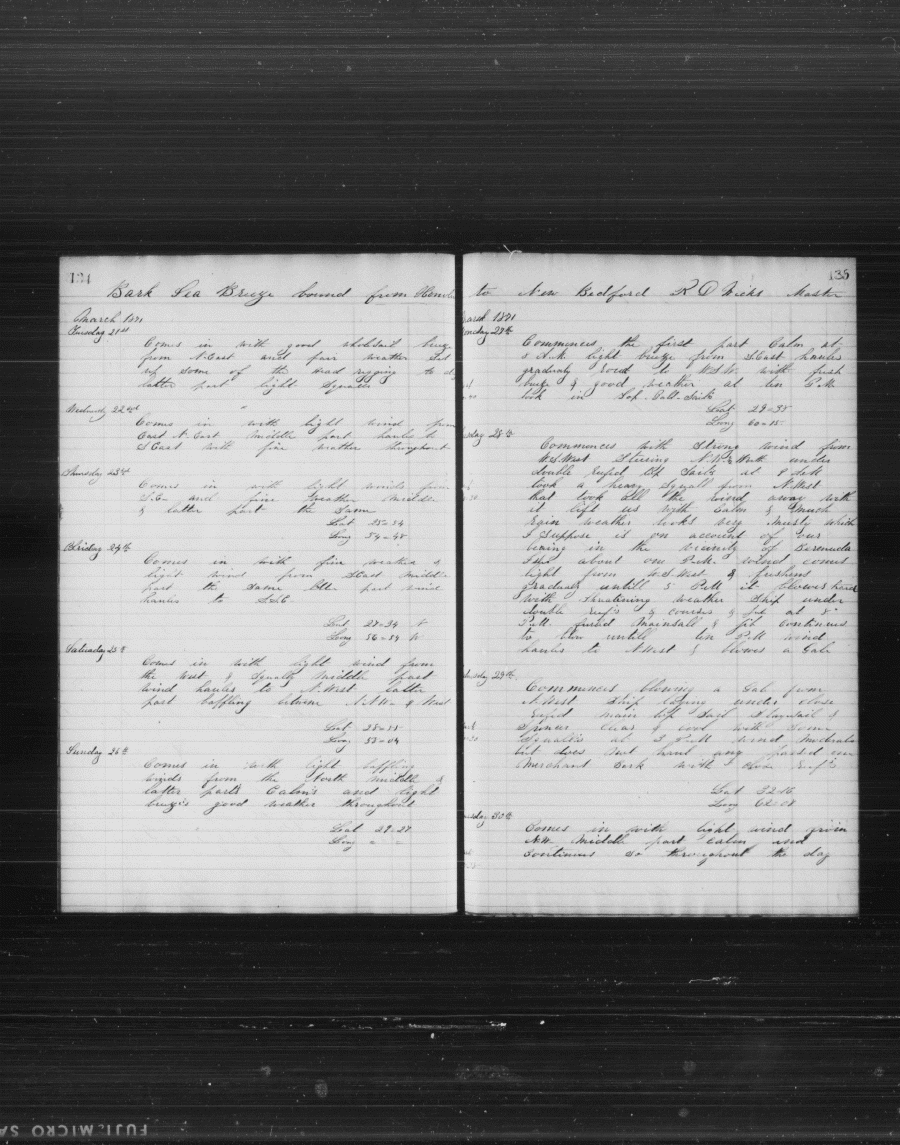 134
Bark Sea Breeze bound from Honolu
March 1871
Tuesday 21st
Comes in with good wholsail breeze
from N. East and fair weather Set
up some of the Head rigging to day
latter part light Squalls
Wednesday 22nd
Comes in with light wind from
East N. East middle part hauls to
S East with fine weather throughout
Thursday 23rd
Comes in with light winds from
S.E. and fine Weather Middle
& latter part the Same
Lat 25=54
Long 54=48
Friday 24th
Comes in with fine weather &
light wind from S East middle
part the Same latter part wind
haules to S.S.E
Lat 27=34 N
Long 56=59 W
Saturday 25th
Comes in with light wind from
the West & Squally Middle part
wind haules to N. West latter
part baffling between N.N.W. & West
Lat 28=
Long 58=04
Sunday 26th
Comes in with light baffling
winds from the North middle &
latter parts Calm's and light
breeze's good weather throughout
Lat 29=28
Long = =
135
to New Bedford R D Wicks Master
March 1871
Monday 27th
Commences the first part Calm at
8 A.M. light breeze from S. East haules
gradualy round to W.S.W. with fresh
breeze & good weather at ten P.M.
took in Top Gall. Sails
Lat 29=
Long 60=
sday 28th
Commences with Strong wind from
W.S. West Steering N.W. & North under
double reefed Top Sails at 8 A.M.
took a heavy Squall from N. West
that took all the wind away with
it left us with Calm & Much
Rain weather looks very Musty which
I Suppose is on account of our
being in the vicinity of Bermuda
Isle about one P.M. wind comes
light from W.S. West & freshens
gradualy untill 5 P.M. it blowes hard
with threatining weather Ship under
double reef's & courses & jib at 8
P.M. furled Mainsail & jib Continues
to blow untill ten P.M. wind
haules to N. West & blowes a Gale
sday 29th
Commences blowing a Gale from
N. West Ship laying under close
Reefed main top Sail Staysail &
Spencer clear & cool with Some
Squalls at 3 P.M. wind Moderates
but does not haul any passed one
Merchant Bark with Close Reef's
Lat 32=16
Long 62=08
sday 30th
Comes in with light wind from
N.W. Middle part Calm and
Continues So throughout the day
FUJI MICRO SA